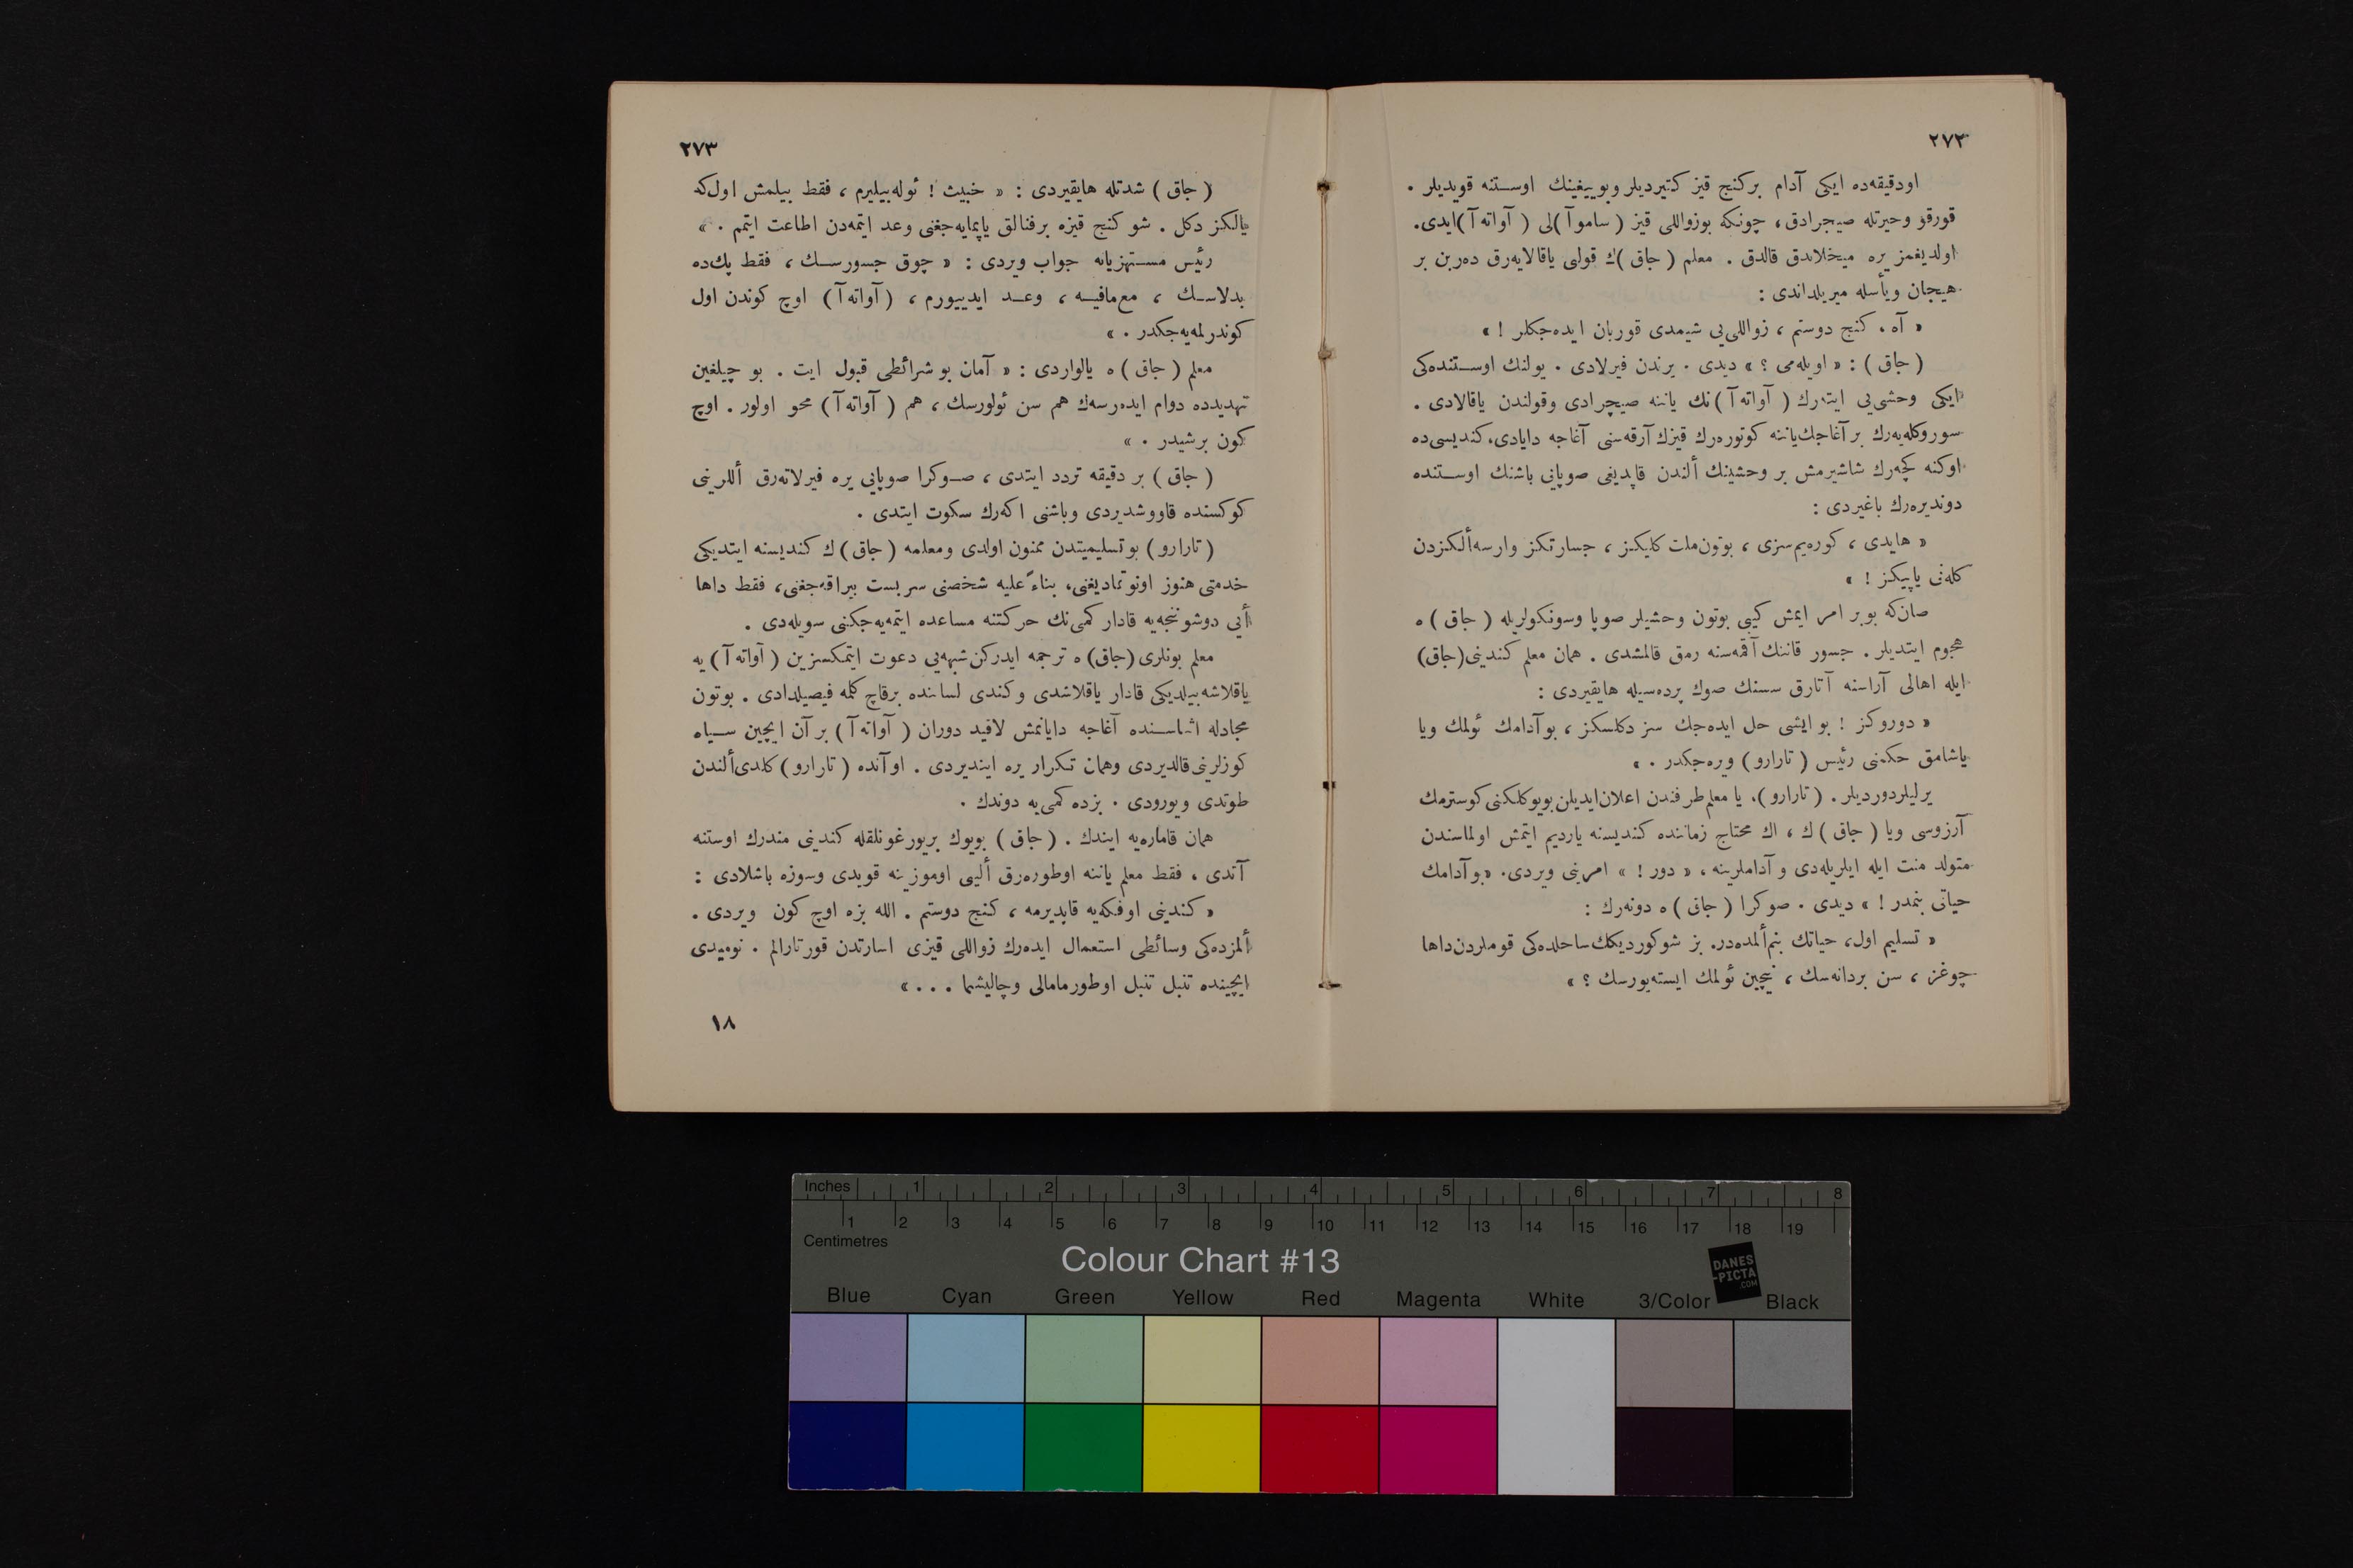 ٢٧٢
اودقيقه‌ده ايكى آدام بركنج قيز كتيرديلر وبوييغينك اوستنه قويديلر .
قورقو وحيرتله صيچرادق، چونكه بوزواللى قيز ( ساموآ )لى ( آواته‌آ )ايدى.
اولديغمز يره ميخلاندق قالدق . معلم ( جاق )ك قولى ياقالايه‌رق ده‌رين بر
هيجان ويأسله ميريلداندى :
« آه ، كنج دوستم ، زواللى‌يى شيمدى قوربان ايده‌جكلر ! »
( جاق ) : « اويله‌مى ؟ » ديدى . يرندن فيرلادى . يولنك اوستنده‌كى
ايكى وحشى‌يى ايته‌رك ( آواته‌آ )نك ياننه صيچرادى وقولندن ياقالادى .
سوروكله‌يه‌رك بر آغاجك‌ياننه كوتوره‌رك قيزك آرقه‌سنى آغاجه دايادى، كنديسى‌ده
اوكنه كچه‌رك شاشيرمش بر وحشينك ألندن قاپديغى صوپايى باشنك اوستنده
دونديره‌رك باغيردى :
« هايدى ، كوره‌يم‌سزى ، بوتون‌ملت كليكز ، جسارتكز وارسه‌ألكزدن
كله‌نى ياپيكز ! »
صان‌كه بوبر امر ايمش كيى بوتون وحشيلر صوپا وسونكولريله ( جاق ) ه
هجوم ايتديلر . جسور قاننك آقمه‌سنه رمق قالمشدى . همان معلم كندينى(جاق)
ايله اهالى آراسنه آتارق سسنك صوك پرده‌سيله هايقيردى :
« دوروكز ! بو ايشى حل ايده‌جك سز دكلسكز ، بو آدامك ئولمك ويا
ياشامق حكمنى رئيس ( تارارو ) ويره‌جكدر . »
يرليلردورديلر . ( تارارو )، يا معلم‌طرفندن اعلان‌ايديلن‌بويوكلكنى‌كوسترمك
آرزوسى ويا ( جاق )ك ، اك محتاج زماننده كنديسنه يارديم ايتمش اولماسندن
متولد منت ايله ايلريله‌دى و آداملرينه ، « دور ! » امرينى ويردى. «بو آدامك
حياتى بنمدر ! » ديدى . صوكرا ( جاق ) ه دونه‌رك :
« تسليم اول، حياتك بنم‌ألمده‌در. بز شوكورديكك‌ساحلده‌كى قوملردن‌داها
چوغز ، سن بردانه‌سك ، نيچين ئولمك ايسته‌يورسك ؟ »
٢٧٣
( جاق ) شدتله هايقيردى : « خبيث ! ئوله‌بيليرم ، فقط بيلمش اول‌كه
يالكز دكل . شو كنج قيزه برفنالق ياپمايه‌جغنى وعد ايتمه‌دن اطاعت ايتمم . »
رئيس مستهزيانه جواب ويردى : « چوق جسورسك ، فقط پك‌ده
بدلاسك ، مع‌مافيه ، وعد ايدييورم ، ( آواته‌آ ) اوچ كوندن اول
كوندرلمه‌يه‌جكدر . »
معلم ( جاق ) ه يالواردى : « آمان بو شرائطى قبول ايت . بو چيلغين
تهديدده دوام ايده‌رسه‌ك هم سن ئولورسك ، هم ( آواته‌آ ) محو اولور . اوچ
كون برشيدر . »
( جاق ) بر دقيقه تردد ايتدى ، صوكرا صوپايى يره فيرلاته‌رق أللرينى
كوكسنده قاووشديردى وباشنى اكه‌رك سكوت ايتدى .
( تارارو ) بو تسليميتدن ممنون اولدى ومعلمه ( جاق )ك كنديسنه ايتديكى
خدمتى هنوز اونوتماديغنى، بناءً عليه شخصنى سربست بيراقه‌جغنى، فقط داها
أيى دوشوننجه‌يه قادار كمى‌نك حركتنه مساعده ايتمه‌يه‌جكنى سويله‌دى .
معلم بونلرى (جاق) ه ترجمه ايدركن شبهه‌يى دعوت ايتمكسزين ( آواته‌آ ) يه
ياقلاشه‌بيلديكى قادار ياقلاشدى وكندى لساننده برقاچ كلمه فيصيلدادى . بوتون
مجادله اثناسنده آغاجه دايانمش لاقيد دوران ( آواته‌آ ) بر آن ايچين سياه
كوزلرينى قالديردى وهمان تكرار يره اينديردى . اوآنده ( تارارو ) كلدى ألندن
طوتدى ويورودى . بزده كمى‌يه دوندك .
همان قاماره‌يه ايندك . ( جاق ) بويوك بريورغونلقله كندينى مندرك اوستنه
آتدى ، فقط معلم ياننه اوطوره‌رق أليى اوموزينه قويدى وسوزه باشلادى :
« كندينى اوفكه‌يه قاپديرمه ، كنج دوستم . الله بزه اوچ كون ويردى .
ألمزده‌كى وسائطى استعمال ايده‌رك زواللى قيزى اسارتدن قورتارالم . نوميدى
ايچينده تنبل تنبل اوطورمامالى وچاليشما ... »
١٨
Inches 1 2 3 4 5 6 7 8
1 2 3 4 5 6 7 8 9 10 11 12 13 14 15 16 17 18 19
Centimetres
Colour Chart #13
DANES
-PICTA
.COM
Blue Cyan Green Yellow Red Magenta White 3/Color Black